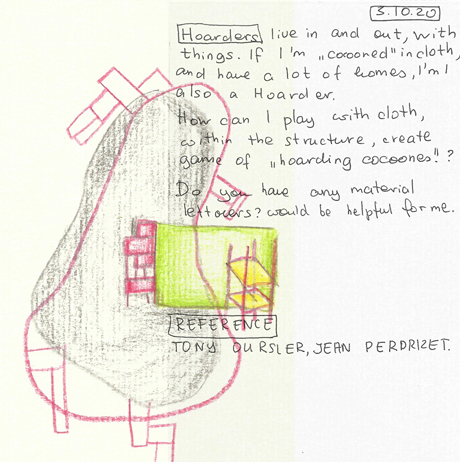 3.10.20
Hoarders live in and out, with
things. If I'm „cocooned" in cloth,
and have a lot of homes, I'm
also a Hoarder.
How can I play with cloth,
within the structure, create
game of „hoarding cocoones!"?
Do you have any material
leftovers? would be helpful for me.
REFERENCE
TONY OURSLER, JEAN PERDRIZET.